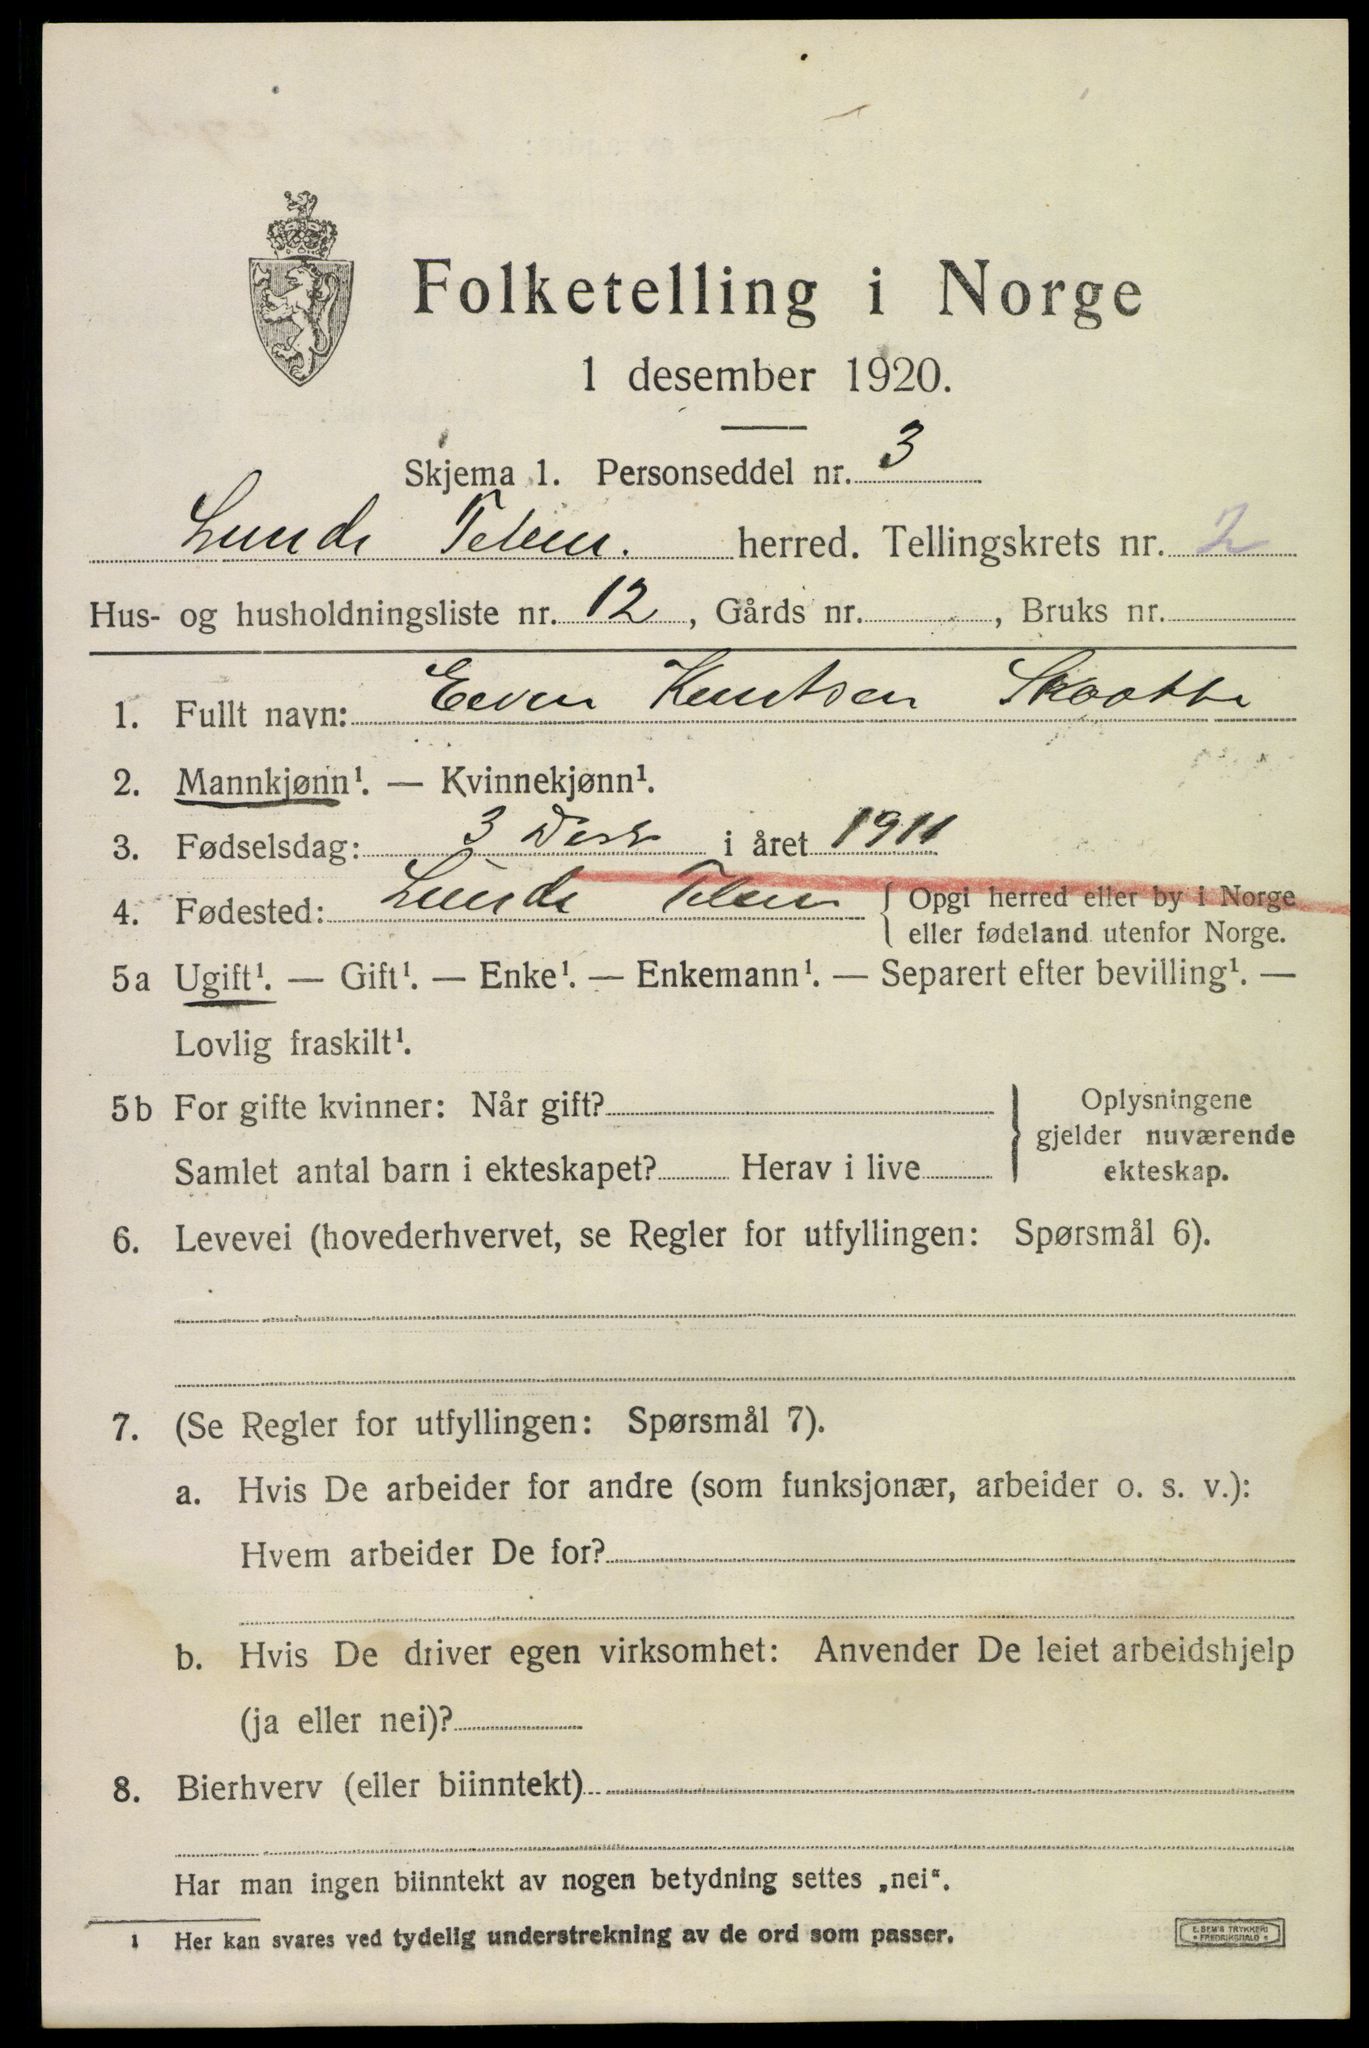 Folketelling i Norge
1 desember 1920.
Skjema 1. Personseddel nr. 3
Lunde Telem. herred. Tellingskrets nr. 2
Hus- og husholdningsliste nr. 12, Gårds nr. , Bruks nr.
1. Fullt navn: Knutsen
2. Mannkjønn¹. — Kvinnekjønn¹.
3. Fødselsdag: 3 i året 1911
4. Fødested: Lunde Telem { Opgi herred eller by i Norge
eller fødeland utenfor Norge.
5a Ugift¹. — Gift¹. — Enke¹. — Enkemann¹. — Separert efter bevilling¹. —
Lovlig fraskilt¹.
5b For gifte kvinner: Når gift? } Oplysningene
gjelder nuværende
Samlet antal barn i ekteskapet? Herav i live ekteskap.
6. Levevei (hovederhvervet, se Regler for utfyllingen: Spørsmål 6).
7. (Se Regler for utfyllingen: Spørsmål 7).
a. Hvis De arbeider for andre (som funksjonær, arbeider o. s. v.):
Hvem arbeider De for?
b. Hvis De driver egen virksomhet: Anvender De leiet arbeidshjelp
(ja eller nei)?
8. Bierhverv (eller biinntekt)
Har man ingen biinntekt av nogen betydning settes „nei“.
1 Her kan svares ved tydelig understrekning av de ord som passer.
E. SEM'S TRYKKERI
• FREDRIKSHALD •